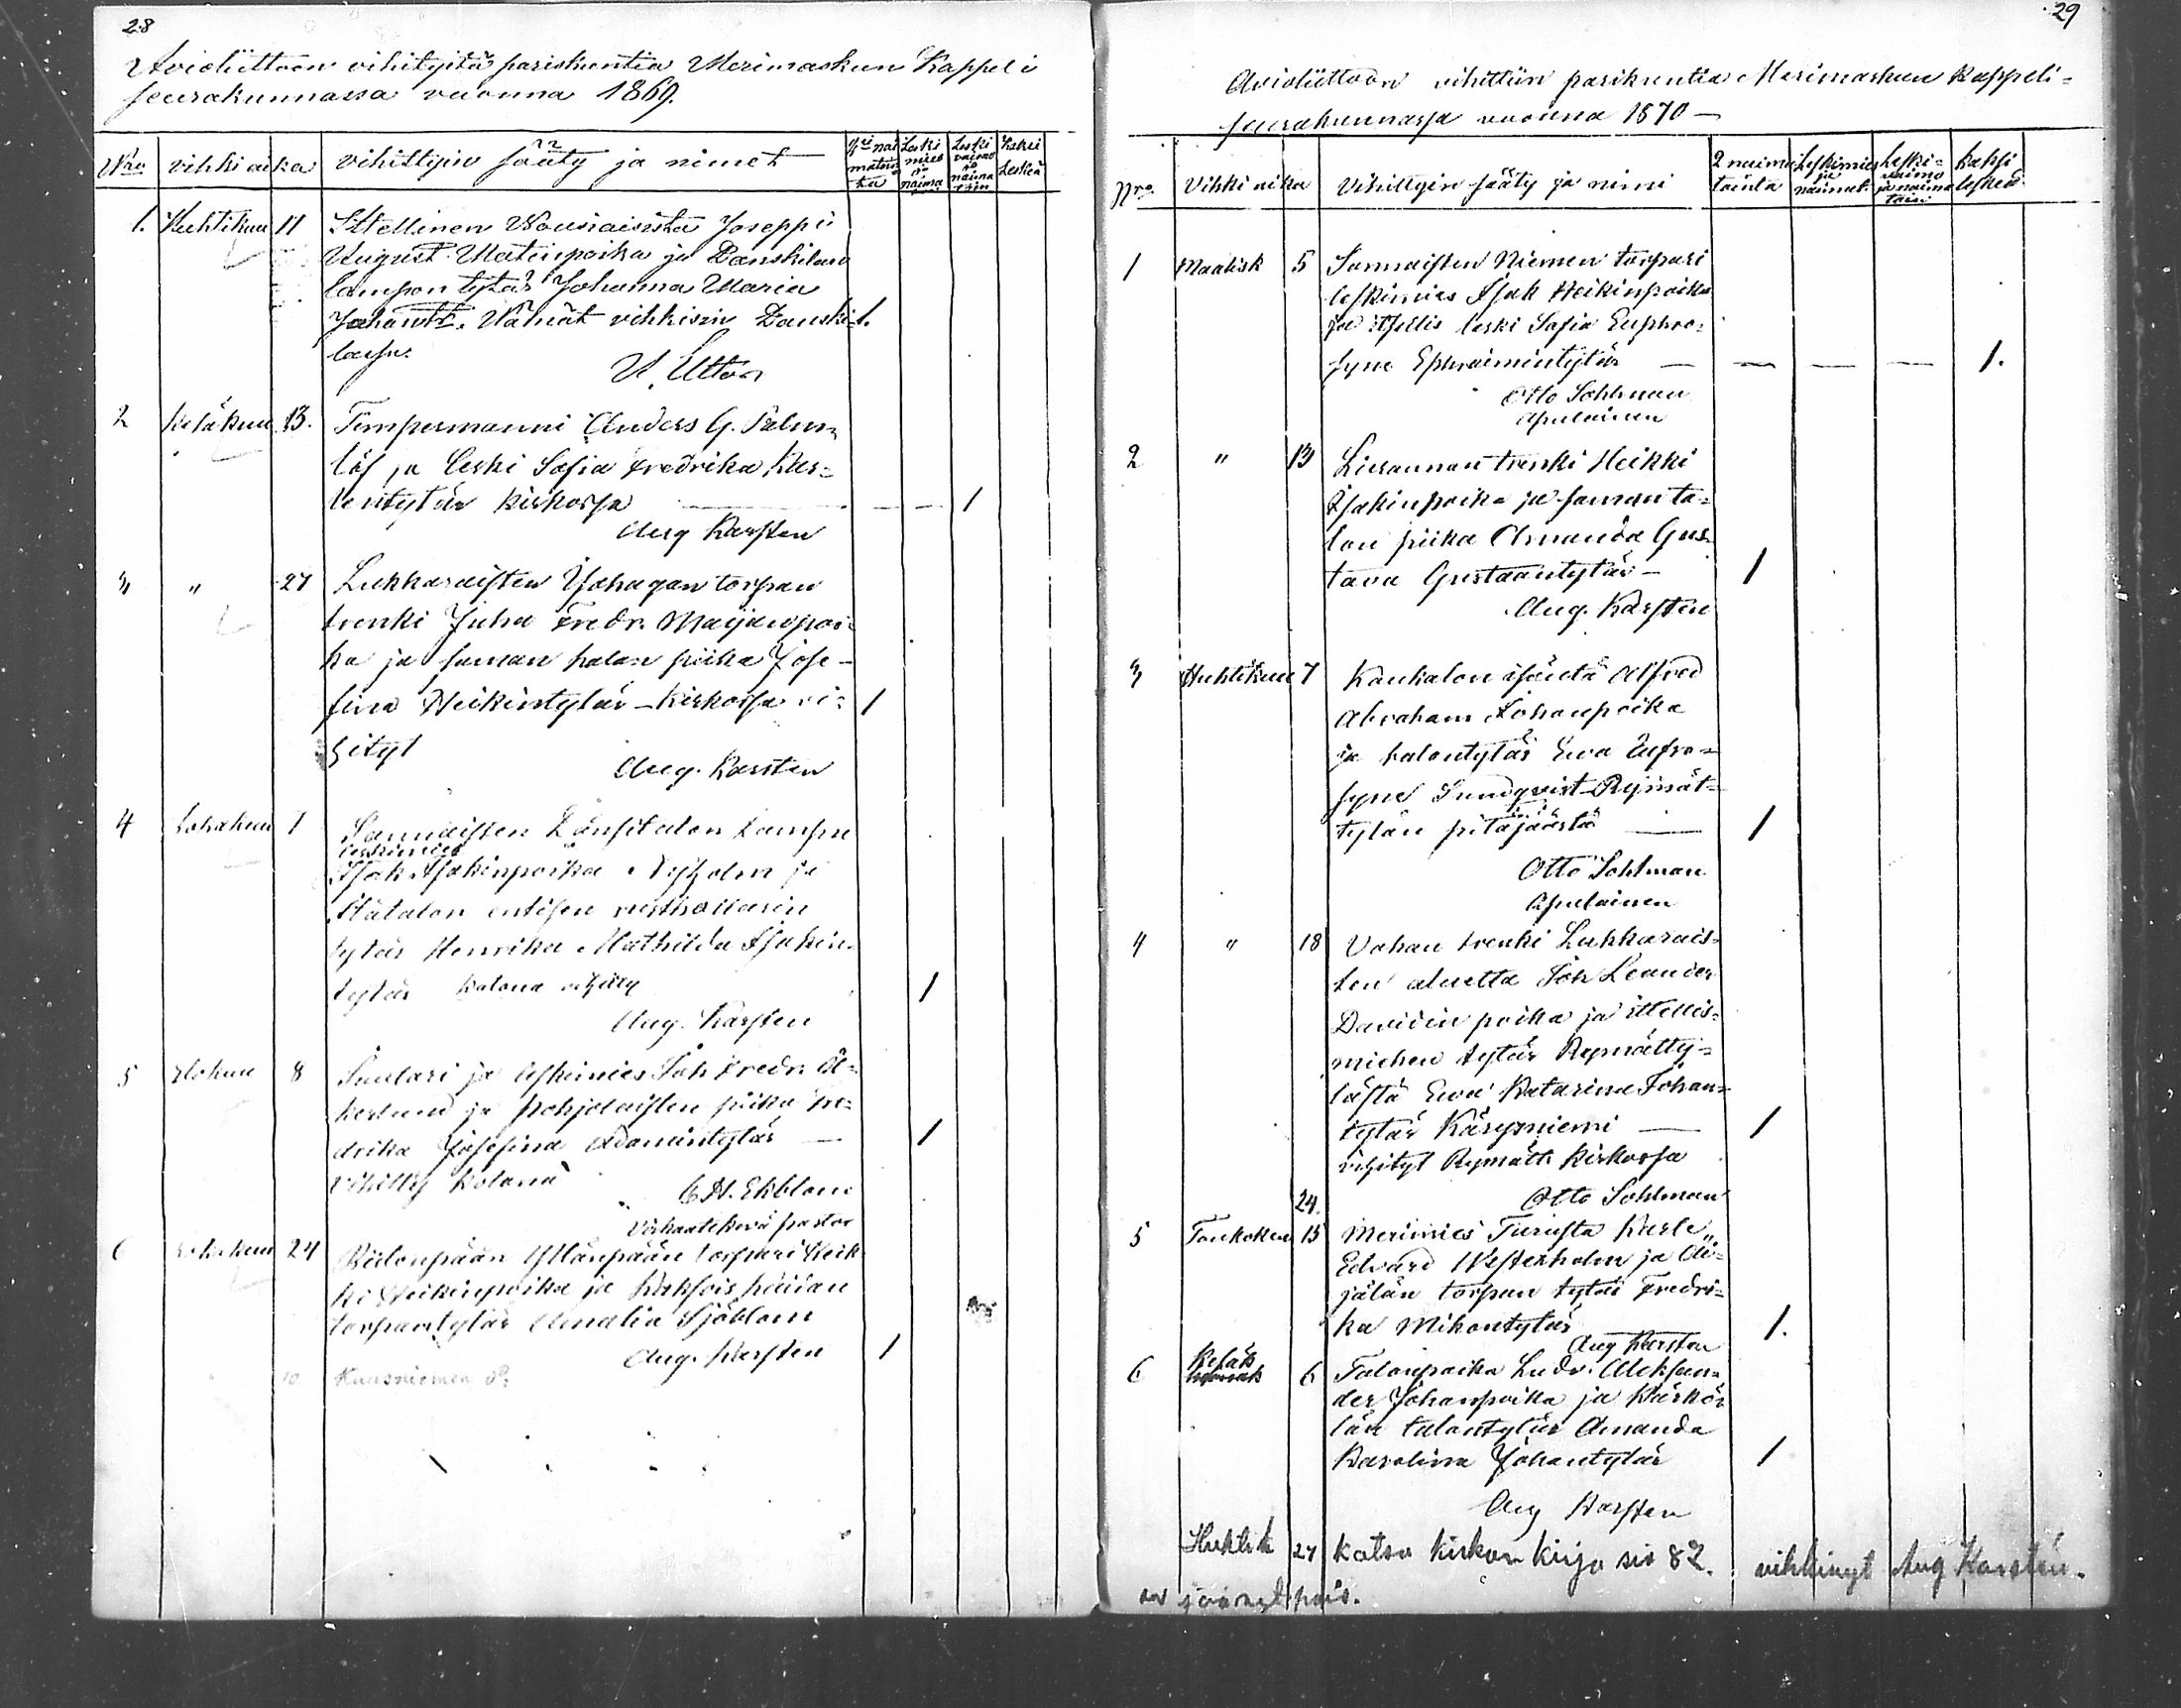 28
Avioliittoon vihityitä pariskuntia Merimaskun Kappeli
seurakunnassa vuonna 1869.
Nro. vihki aika vihittyin sääty ja nimet
1. Huhtikuu 11 Ittellinen Nousiaisista Joseppi
August Matinpoika ja Danskilan
lampon tytär Johanna Maria
Johantt. Nämät vihkisin Danski- 1.
lassa.
2 Kesäkuu 13. Timpermanni Anders G. Palm-
löf ja leski Sofia Fredrika Kus-
tentytär kirkossa — — 1
Aug Karsten
3 " 27 Lukkaraisten Yohagan torpan
trenki Juha Fredr. Maijanpoi-
ka ja saman talon piika Jose-
fina Heikintytär – Kirkossa vi- 1
hityt
Aug. Karsten
4 Lokakuu 1 Sannaisten Länsitalon Lampu
leskimies
Isak Isakinpoika Nyholm ja
Itätalon entisen rusthollarin
tytär Henrika Mathilda Isakin-
tytär kotona vihitty 1
Aug. Karsten
5 Elokuu 8 Suutari ja leskimies Joh Fredr. Å-
kerlund ja Pohjolaisten piika Fre-
drika Josefina Adamintytär — 1
Vihitty kotona
C. H. Ekblom
Virkaatekevä pastor
6 Lokakuu 24 Riidonpään Yllänpään torpari Heik
ki Heikinpoika ja
torparintytär Amalia Sjöblom
Aug. Karsten 1
10 Kuusniemen
29
Avioliittoon vihittiin parikuntia Merimaskun Kappeli-
seurakunnassa vuonna 1870 —
Nro. Vihki aika Vihittyin sääty ja nimi
2 naima- Leskimies Leski- Kaksi
tointa ja vaimo leskeä
naimat. ja naima
toin
1 Maalisk 5 Sannaisten Niemen torpari
leskimies Isak Heikinpoika
ja itsellis leski Sofia Euphro-
syne Ephraimintytär — — — — 1.
Otto Sohlman
Apulainen
2 " 13 Lierannan trenki Heikki
Isakinpoika ja saman ta-
lon piika Amanda Gus-
tava Gustaantytär — 1
Aug. Karsten
3 Huhtikuu 7 Kaukalon isäntä Alfred
Abraham Johanpoika
ja talontytär Ewa Eufro-
syne Sundqvist Rymät-
tylän pitäjäästä — 1
Otto Sohlman
Apulainen
4 " 18 Vahan trenki Lukkarais-
ten aluetta Joh Leander
Davidin poika ja ittellis-
miehen tytär Rymätty-
lästä Ewa Katarina Johan-
tytär Käryniemi — 1
vihityt Rymätt. kirkossa
Otto Sohlman
24.
5 Toukokuu 15 Merimies Turusta Karle
Edvard Westerholm ja Äi-
jälän torpan tytär Fredri-
ka Mikontytär 1.
Aug Karsten
6 Kesäk 6 Talonpoika Ludv. Aleksan-
der Johanpoika ja Kärkö-
län talontytär Amanda
Karolina Johantytär 1
Aug Karsten
Huhtik 27 katso kirkon kirja siv 82. vihkinyt Aug Karstén.
on jäänyt pois.